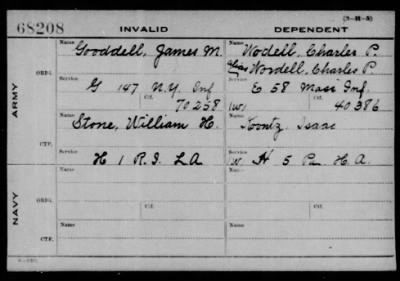 (3-H-5)
68208 INVALID DEPENDENT
ARMY
ORIG.
Name
Gooddell, James M.
Name
Wodell, Charles P.
alias Wordell, Charles P.
Service
G 147 N.Y. Inf
Ctf.
70258
Service
E 58 Mass Inf
Ctf.
(W) 40386
CTF.
Name
Stone, William H.
Name
Koontz, Isaac
Service
H 1 R.I. L A
Service
W. H 5 Pa H. A.
NAVY
ORIG.
Name
Name
Service
Ctf.
Service
Ctf.
CTF.
Name
Name
Service
Service